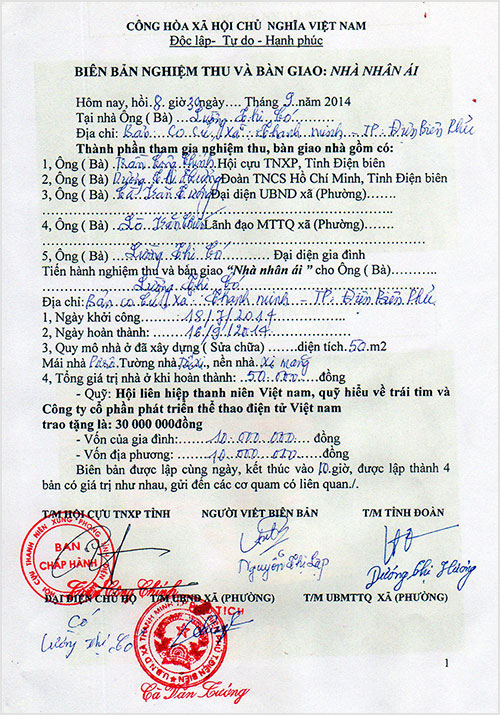 CÔNG HÒA XÃ HỘI CHỦ NGHĨA VIỆT NAM
Độc lập- Tự do - Hạnh phúc
BIÊN BẢN NGHIỆM THU VÀ BÀN GIAO: NHÀ NHÂN ÁI
Hôm nay, hồi 8 giờ 30 ngày.... Tháng 9. năm 2014
Tại nhà Ông ( Bà) ...Lường Thị Có
Địa chỉ: Bản Co Củ, Xã Thanh minh - TP. Điện Biên Phủ
Thành phần tham gia nghiệm thu, bàn giao nhà gồm có:
1, Ông ( Bà) Trần Công Chính Hội cựu TNXP, Tỉnh Điện biên
2, Ông ( Bà) Dương Thị Hương Đoàn TNCS Hồ Chí Minh, Tỉnh Điện biên
3, Ông ( Bà) Cà Văn Tướng Đại diện UBND xã (Phường).......
4, Ông ( Bà) Lò Lãnh đạo MTTQ xã (Phường)......
5, Ông ( Bà) Lường Thị Có Đại diện gia đình
Tiến hành nghiệm thu và bản giao "Nhà nhân ái" cho Ông ( Bà)...........
Lường Thị Có
Địa chỉ: Bản Co Củ, Xã Thanh minh - TP. Điện Biên Phủ
1, Ngày khởi công ............18/7/2014
2, Ngày hoàn thành: ......16/9/2014
3, Quy mô nhà ở đã xây dựng ( Sửa chữa) .......diện tích.50.m2
Mái nhà Tường nhà, nền nhà. xi măng
4, Tổng giá trị nhà ở khi hoàn thành: ..50.000.000 đồng
- Quỹ: Hội liên hiệp thanh niên Việt nam, quỹ hiểu về trái tim và
Công ty cổ phần phát triển thể thao điện tử Việt nam
trao tặng là: 30 000 000đồng
- Vốn của gia đình: 10.000.000 đồng
- Vốn địa phương: 10.000.000 đồng
Biên bản được lập cùng ngày, kết thúc vào 10 giờ, được lập thành 4
bản có giá trị như nhau, gửi đến các cơ quam có liên quan./.
T/M HỘI CỰU TNXP TỈNH NGƯỜI VIẾT BIÊN BẢN T/M TỈNH ĐOÀN
BAN
CHẤP HÀNH
Trần Công Chính Nguyễn Thị Lập Dương Thị Hương
ĐẠI DIỆN CHỦ HỘ T/M UBND XÃ (PHƯỜNG) T/M UBMTTQ XÃ (PHƯỜNG)
TỊCH
Có
Lường Thị Có
U.B.N.D XÃ THANH MINH T.P ĐIỆN BIÊN PHỦ T.ĐIỆN BIÊN
Cà Văn Tướng
1